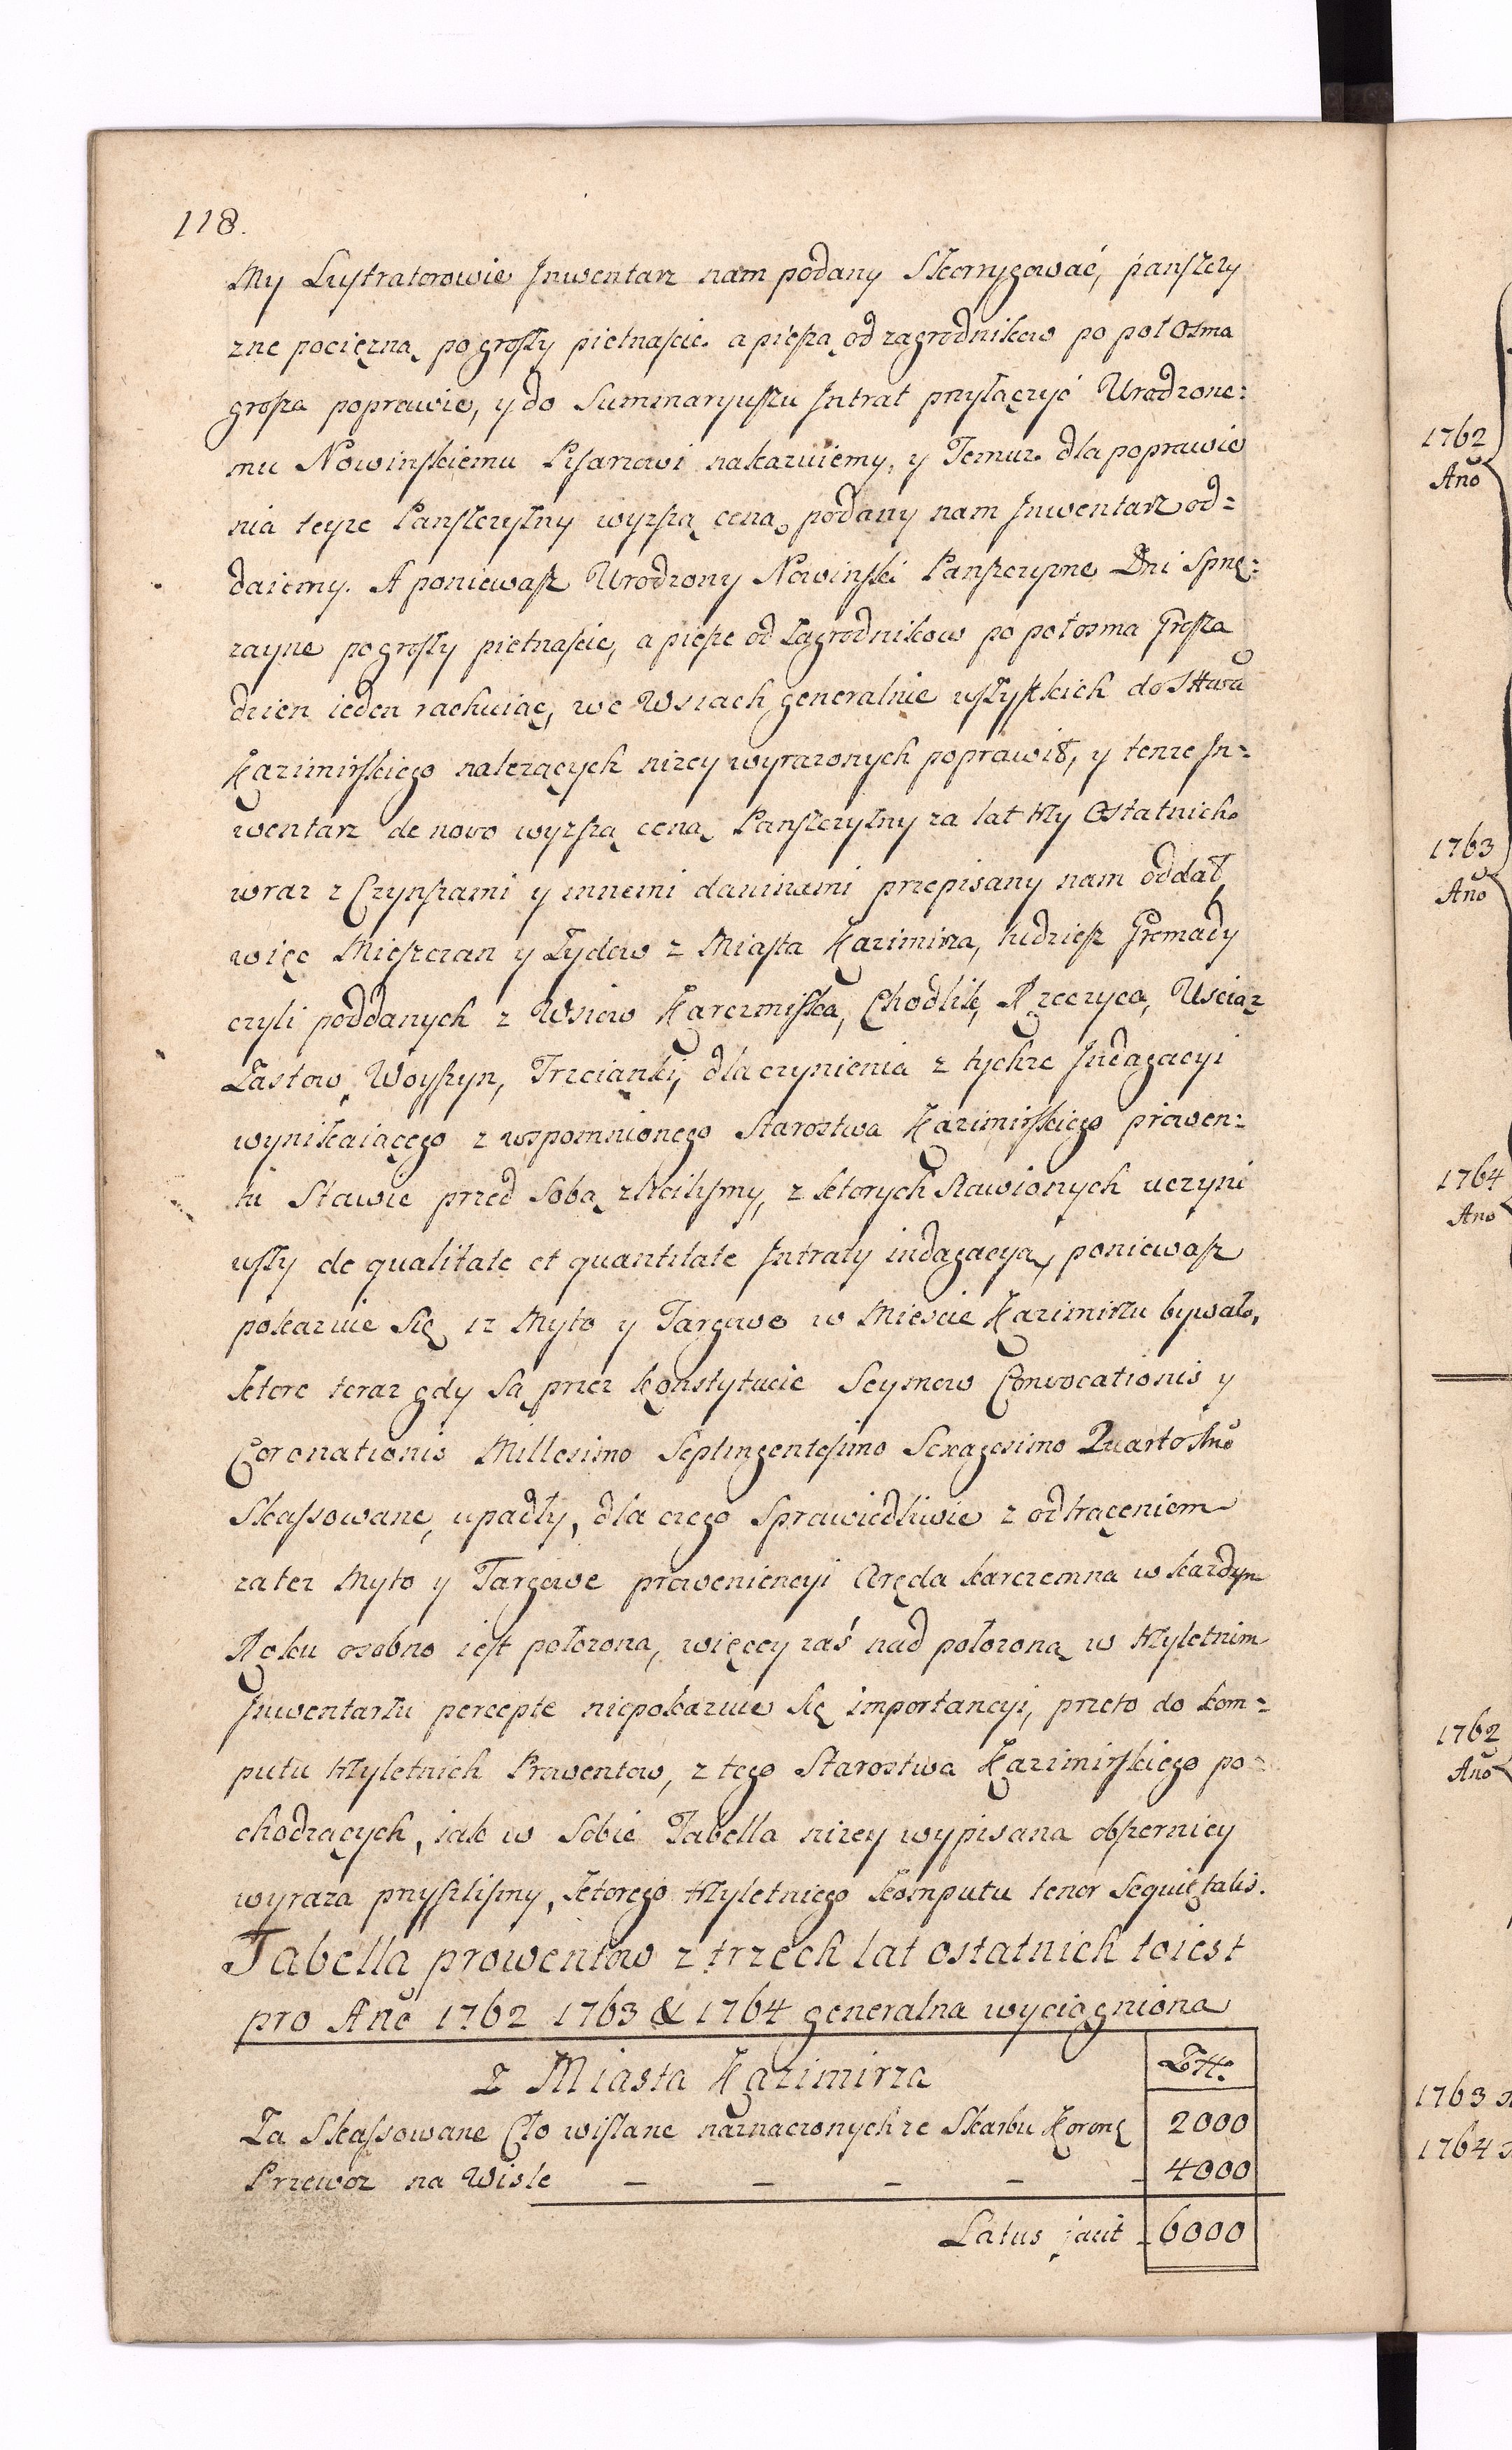 118.
My Lustratorowie Jnwentarz nam podany Skorrygować, panszczy
znę pociężną po groszy piętnaście a pieszą od zagrodnikow po poł osma
grosza poprawic, y do Summaryuszu Jntrat przyłączyć Urodzone:
mu Nowinskiemu Pisarzowi nakazuiemy, y Temuz dla poprawie
nia teyze Panszczyzny wyzszą ceną podany nam Jnwentarz od=
daiemy. A poniewasz Urodzony Nowinski Panszczyzne Dni Sprzę:
zayne po groszy piętnaście, a piesze od Zagrodnikow po poł osma Grosza
dzien ieden rachuiąc, we Wsiach generalnie wszystkich do Sttwa
Kazimirskiego nalezących nizey wyrazonych poprawił, y tenze Jn=
wentarz de novo wyzszą ceną Panszczyzny za lat trzy Ostatnich
wraz z Czynszami y innemi daninami przepisany nam oddał,
więc Mieszczan y Zydow z Miasta Kazimirza, tudziesz Gromady
czyli poddanych z Wsiow Karczmiska, Chodlik, Rzeczyca, Usciąz
Zastow, Woyszyn, Trzcianki, dla czynienia z tychze Jndagacyi
wynikaiącego z wspomnionego Starostwa Kazimirskiego prowen:
tu Stawic przed Sobą zleciliśmy, z ktorych Stawionych uczyni
wszy de qualitate et quantitate Jntraty indagacyą, poniewasz
pokazuie Się iz Myto y Targowe w Miescie Kazimirzu bywało,
ktore teraz gdy Są przez konstytucie Seymow Convocationis y
Coronationis Millesimo Septingentesimo Sexagesimo Quarto Ano
Skassowane, upadły, dla czego Sprawiedliwie z odtrąceniem
zatez Myto y Targowe proweniencyi Aręda karczemna w kazdym
Roku osobno iest połozona, więcey zaś nad połozoną w trzyletnim
Jnwentarzu perceptę niepokazuie Się importancyi, przeto do kom=
putu trzyletnich Prowentow, z tego Starostwa Kazimirskiego po=
chodzących, iak w Sobie Tabella nizey wypisana obszerniey
wyraza przyszliśmy, ktorego trzyletniego komputu tenor Sequit talis.
Tabella prowentow z trzech lat ostatnich toiest
pro Ano 1762 1763 & 1764 generalna wyciągniona
z Miasta Kazimirza
Za Skassowane Cło wislane naznaczonych ze Skarbu Koronę 2000
Przewoz na Wisle – – – – – 4000
Latus facit – 6000
1762
Año
1763
Año
1764
Ano
1762
Año
1763
1764